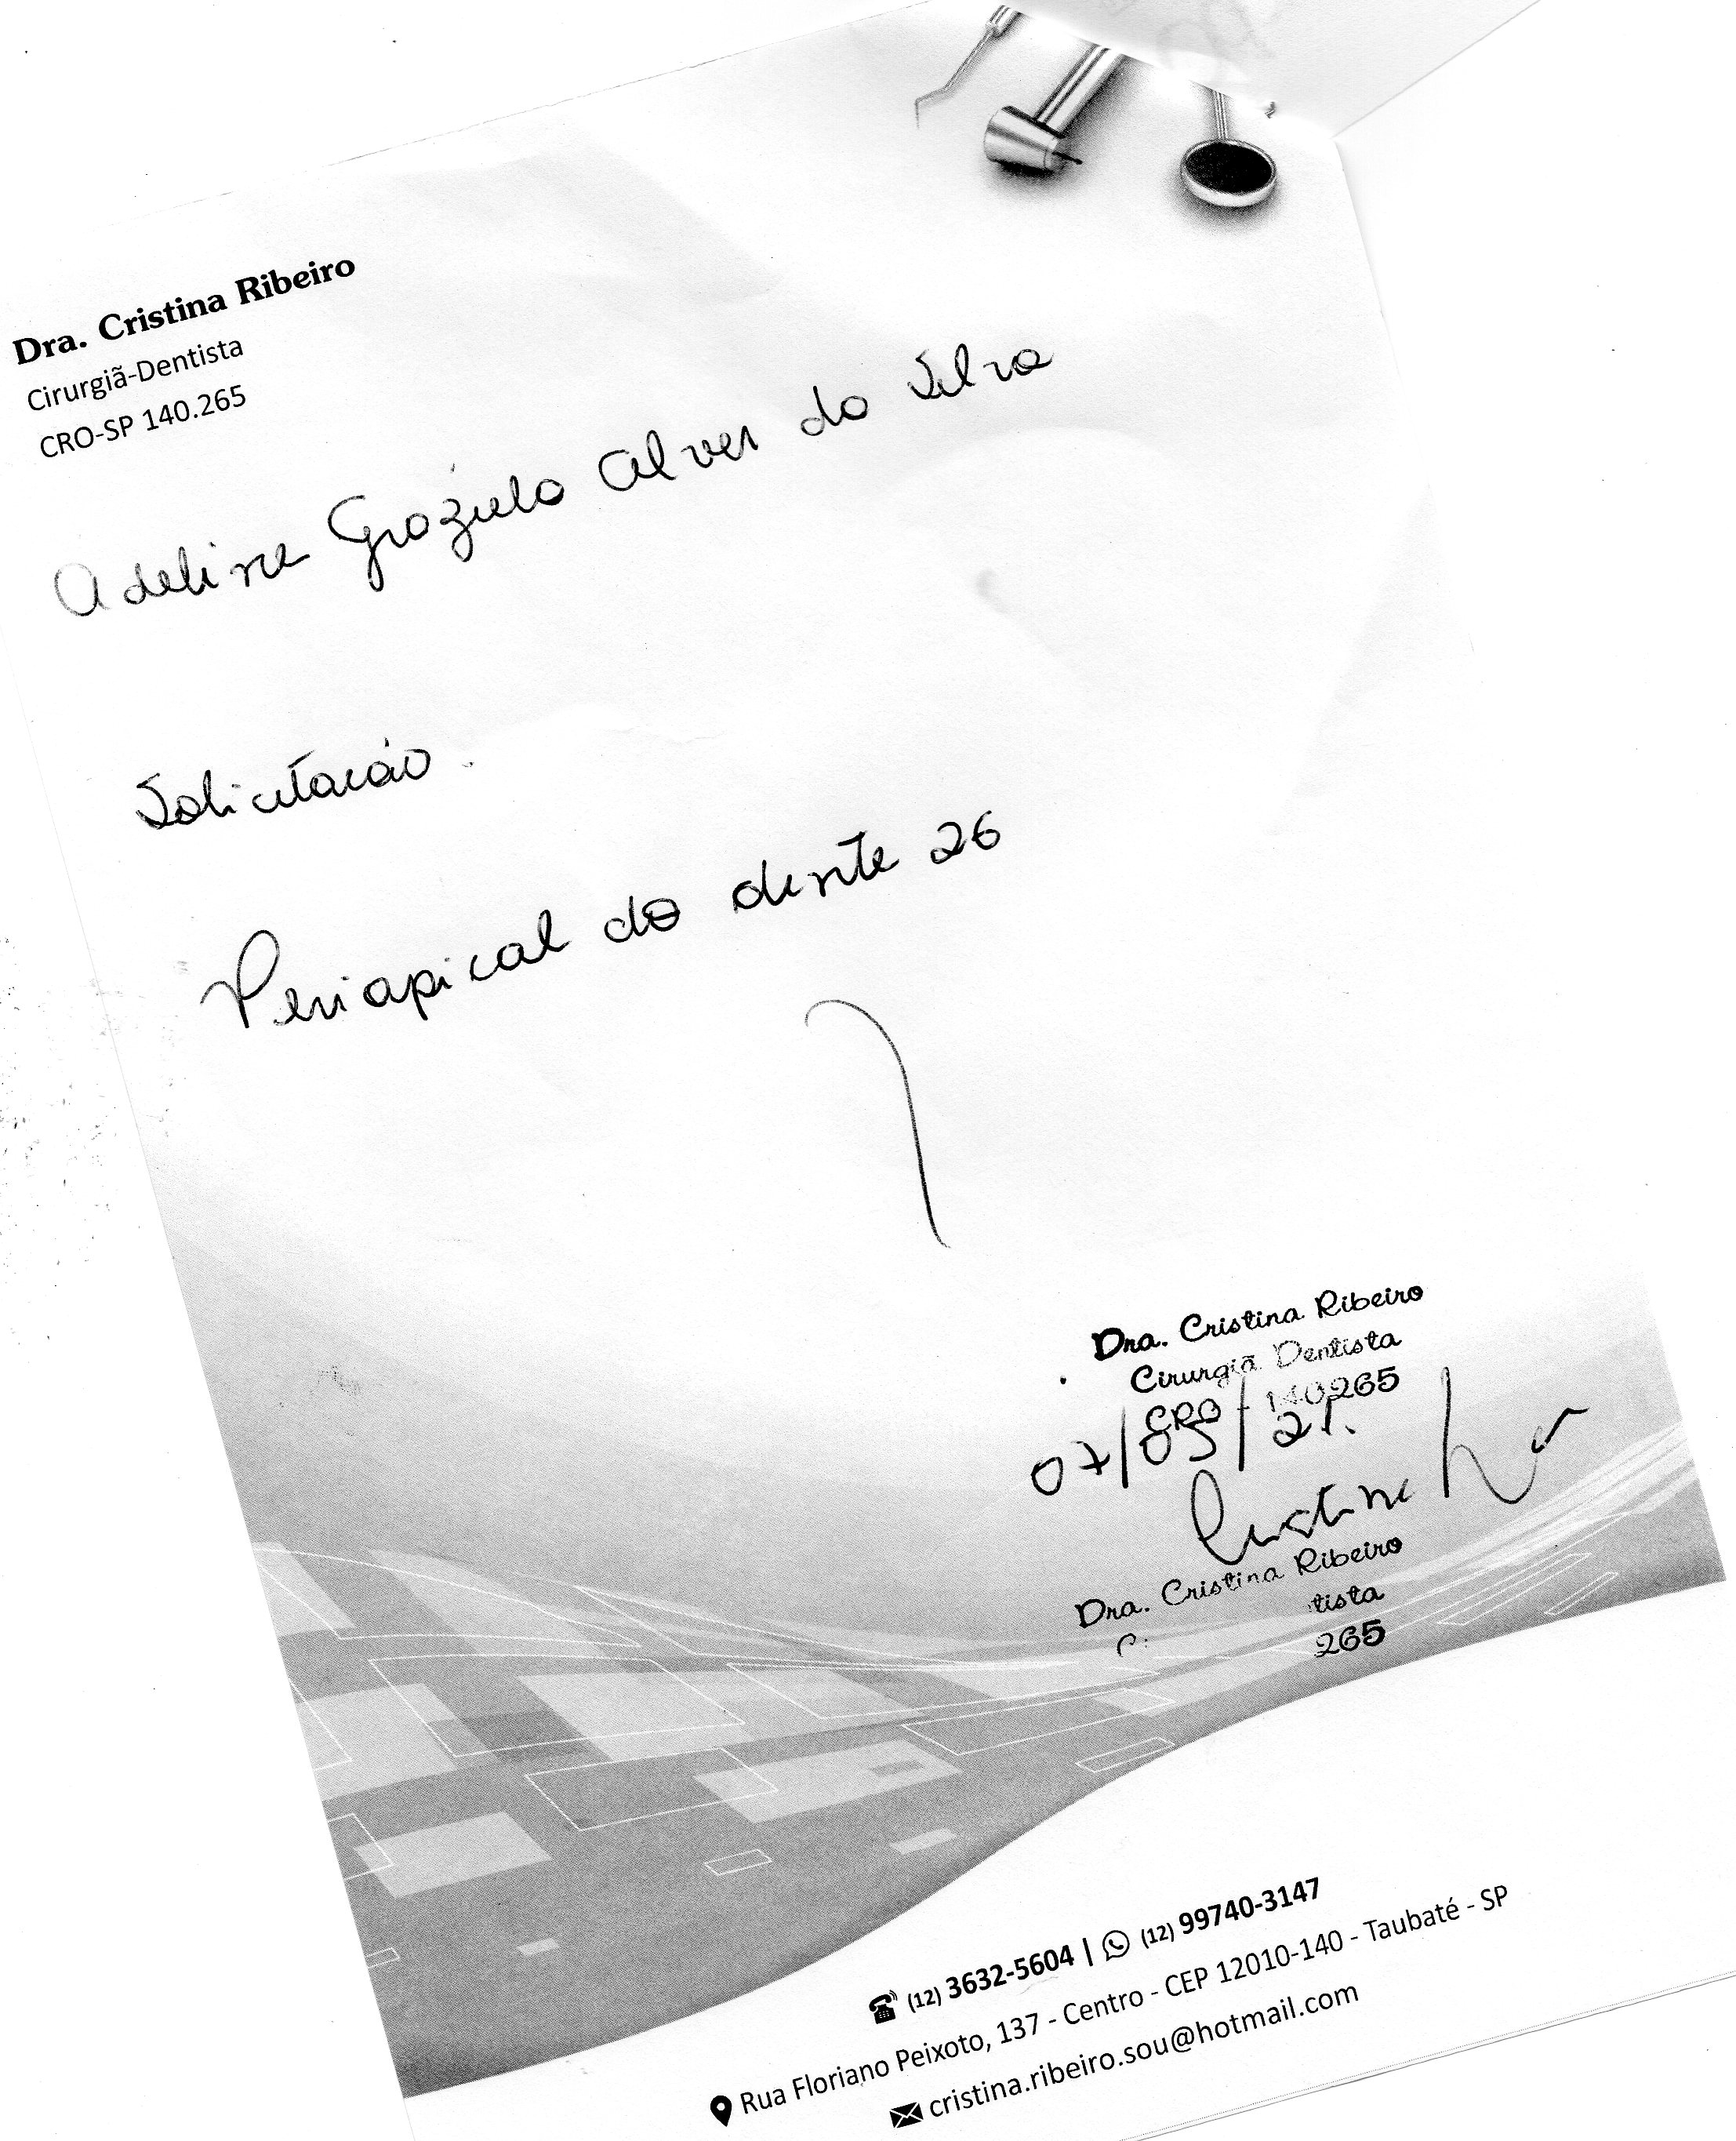 Dra. Cristina Ribeiro
Cirurgiã-Dentista
CRO-SP 140.265
Adeline Graziela Alves da Silva
Solicitação.
Periapical do dente 26
Dra. Cristina Ribeiro
Cirurgiã Dentista
CRO - 140265
07/05/21.
Cristina
Dra. Cristina Ribeiro
tista
265
(12) 3632-5604 | (12) 99740-3147
Rua Floriano Peixoto, 137 - Centro - CEP 12010-140 - Taubaté - SP
cristina.ribeiro.sou@hotmail.com